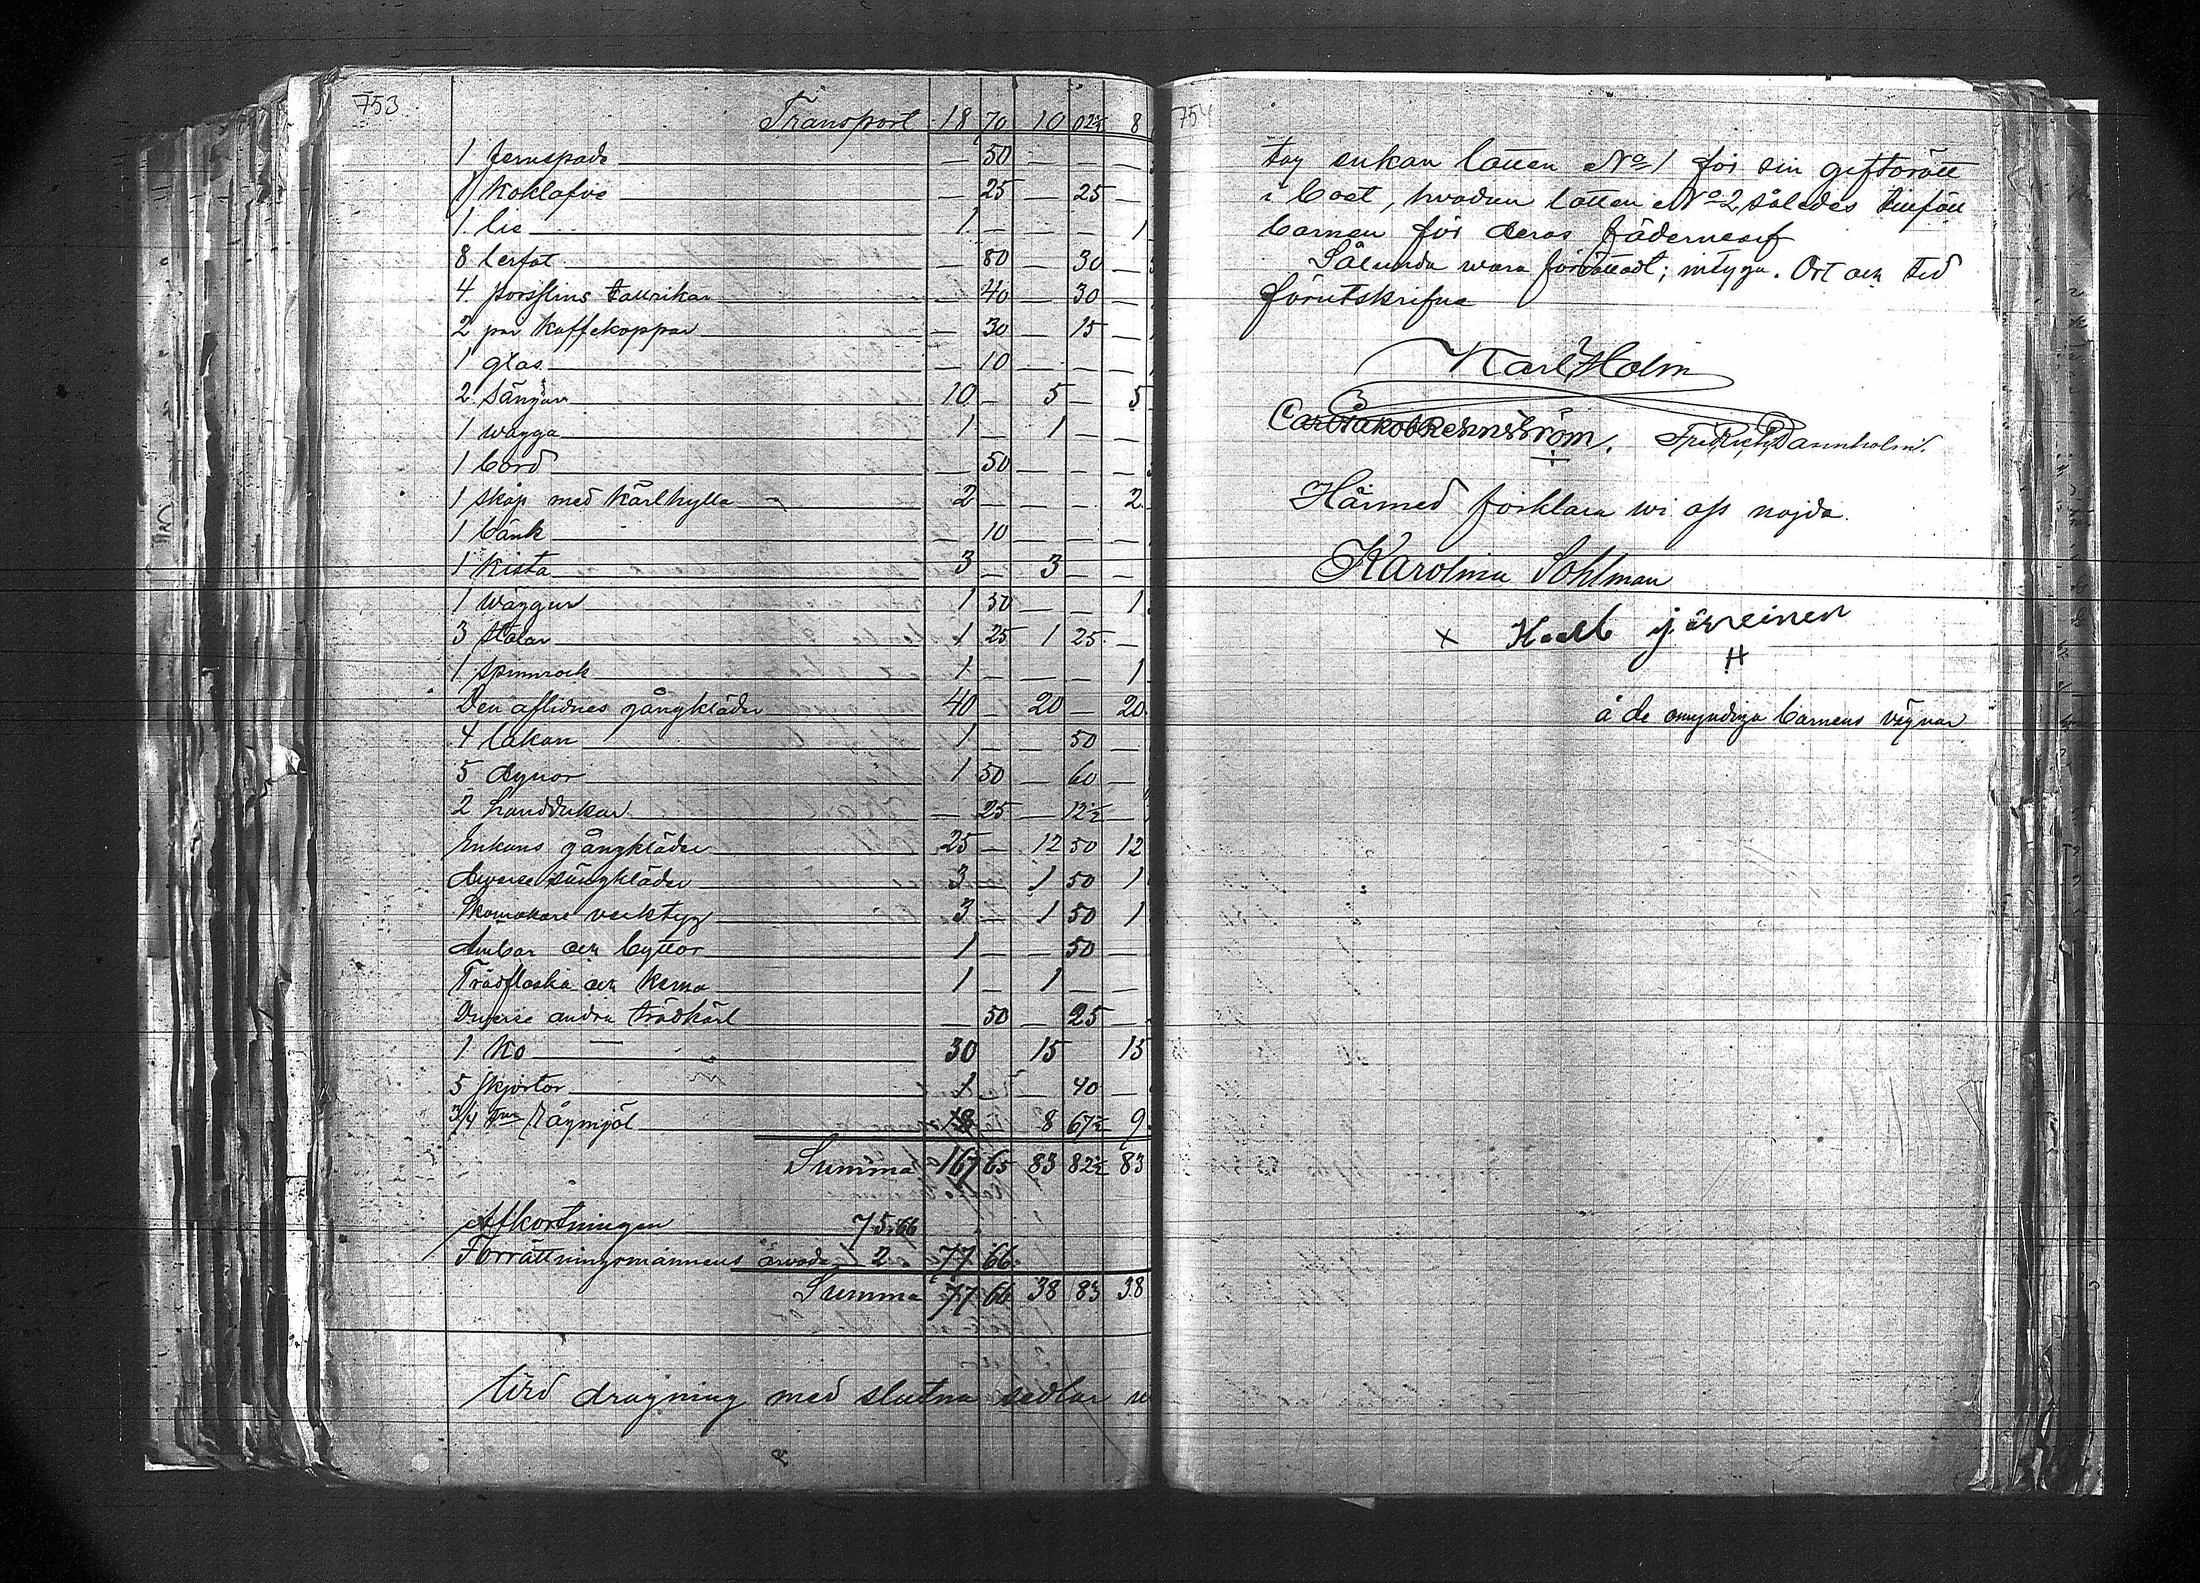 753
Transport 18 70 10 02½ 8
1 jernspade — 50 — — —
1 koklafve — 25 — 25 —
1 lie 1 — — — 1
8 lerfat — 80 — 30 —
4 porslins tallrikar — 40 — 30 —
2 par kaffekoppar — 30 — 15 —
1 glas — 10 — — —
2 sängar 10 — 5 — 5
1 wagga 1 — 1 — —
1 bord — 50 — — —
1 skåp med kärlhylla 2 — — — 2
1 bänk — 10 — — —
1 kista 3 — 3 — —
1 väggur 1 50 — — 1
3 stolar 1 25 1 25 —
1 spinnrock 1 — — — 1
Den aflidnes gångkläder 40 — 20 — 20
4 lakan 1 — — 50 —
5 dynor 1 50 — 60 —
2 handdukar — 25 — 12½ —
Enkans gångkläder 25 — 12 50 12
Diverse sängkläder 3 — 1 50 1
Skomakare verktyg 3 — 1 50 1
Ämbar och byttor 1 — — 50 —
Trädflaska och kerna 1 — 1 — —
Diverse andra trädkärl — 50 — 25 —
1 ko 30 15 15
5 skjortor 1 — — 40 —
3/4 Tna Rågmjöl 18 8 67½ 9
Summa 167 65 83 82½ 83
Afkortningen 75.66
Förrättningsmännens arvode 2 77 66
Summa 77 66 38 83 38
Wid dragning med slutna sedlar
754
tog enkan lotten No 1 för sin giftorätt
i boet, hvadan lotten No 2 således tillföll
barnen för deras fädernearf
Sålunda vara förrättadt; intyga. Ort och tid
förutskrifne
Karl Holm
Carl Jakob Rehnström. Fredrich Dannholm.
Härmed förklara wi oss nöjda.
Karolina Sohlman
x
H
å de omyndiga barnens vägnar